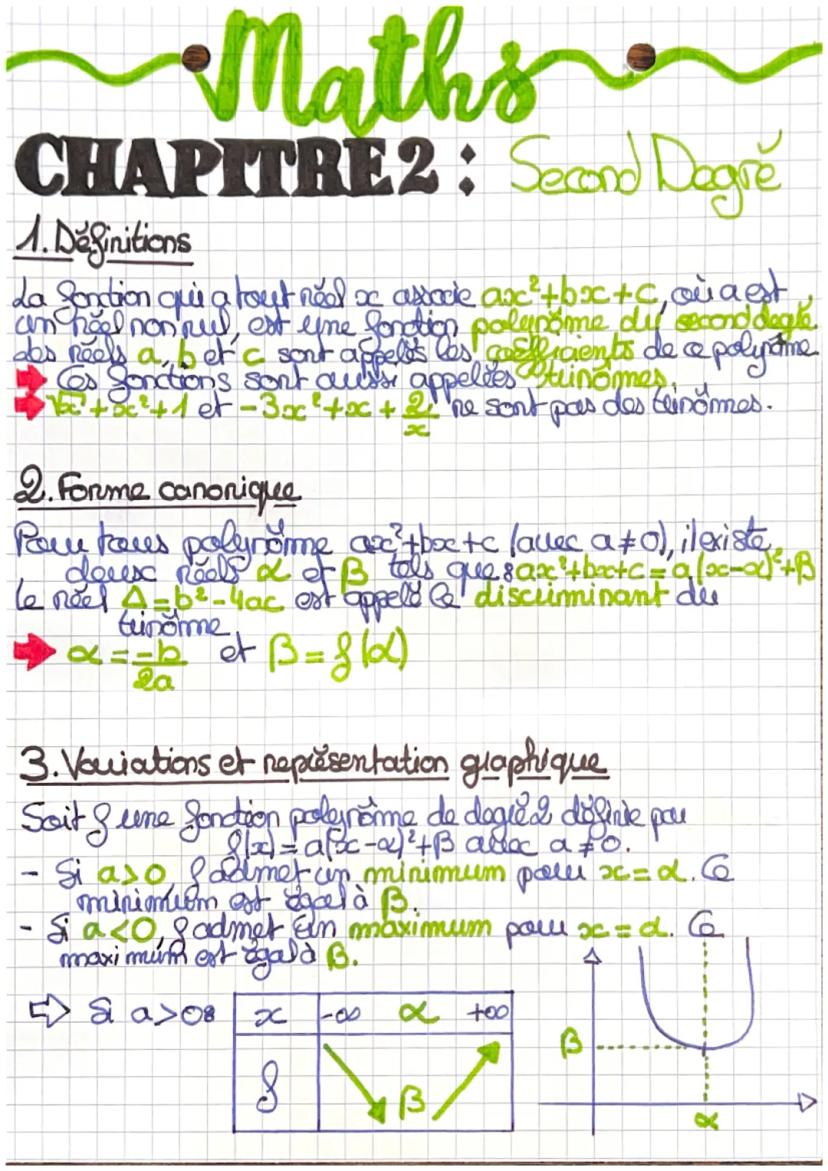 Maths
CHAPITRE 2 : Second Degré
1. Définitions
La fonction qui a tout réel x associe ax²+bx+c, où a est
un réel non nul, est une fonction polynôme du second degré
des réels a, b et c sont appelés les coefficients de ce polynôme
➡ Ces fonctions sont aussi appelées trinômes.
➡ √x + x² + 1 et -3x² + x + 2/x ne sont pas des trinômes.
2. Forme canonique
Pour tous polynôme ax²+bx+c (avec a ≠ 0), il existe
deux réels α et β tels que : ax²+bx+c = a(x-α)²+β
Le réel Δ = b²-4ac est appelé le discriminant du
trinôme
➡ α = -b/2a et β = f(α)
3. Variations et représentation graphique
Soit f une fonction polynôme de degré 2 définie par
f(x) = a(x-α)²+β avec a ≠ 0.
- Si a>0, f admet un minimum pour x = α. Ce
minimum est égal à β.
- Si a<0, f admet un maximum pour x = α. Ce
maximum est égal à β.
⇨ Si a>0:
x -∞ α +∞
f β
β
α